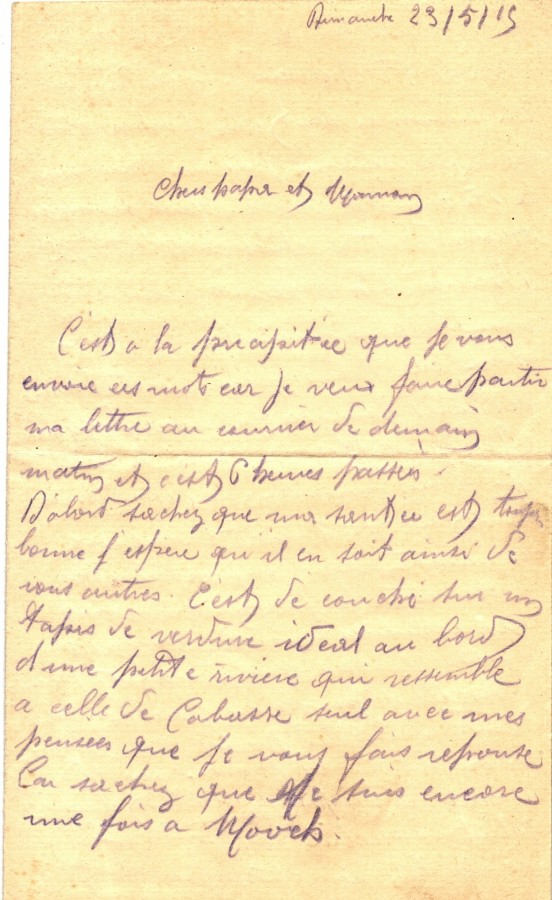 Dimanche 23/5/15
Chers papa et Maman
C'est a la precipitée que je vous
envoie ces mots car je veux faire partir
ma lettre au courrier de demain
matin et c'est 6 heures passées.
D'abord sachez que ma santée est toujo
bonne j'espere qu'il en soit ainsi de
vous autres. C'est de couché sur un
tapis de verdure ideal au bord
d'une petite riviere qui ressemble
a celle de Cabasse seul avec mes
pensées que je vous fais reponse
Car sachez que je suis encore
une fois a